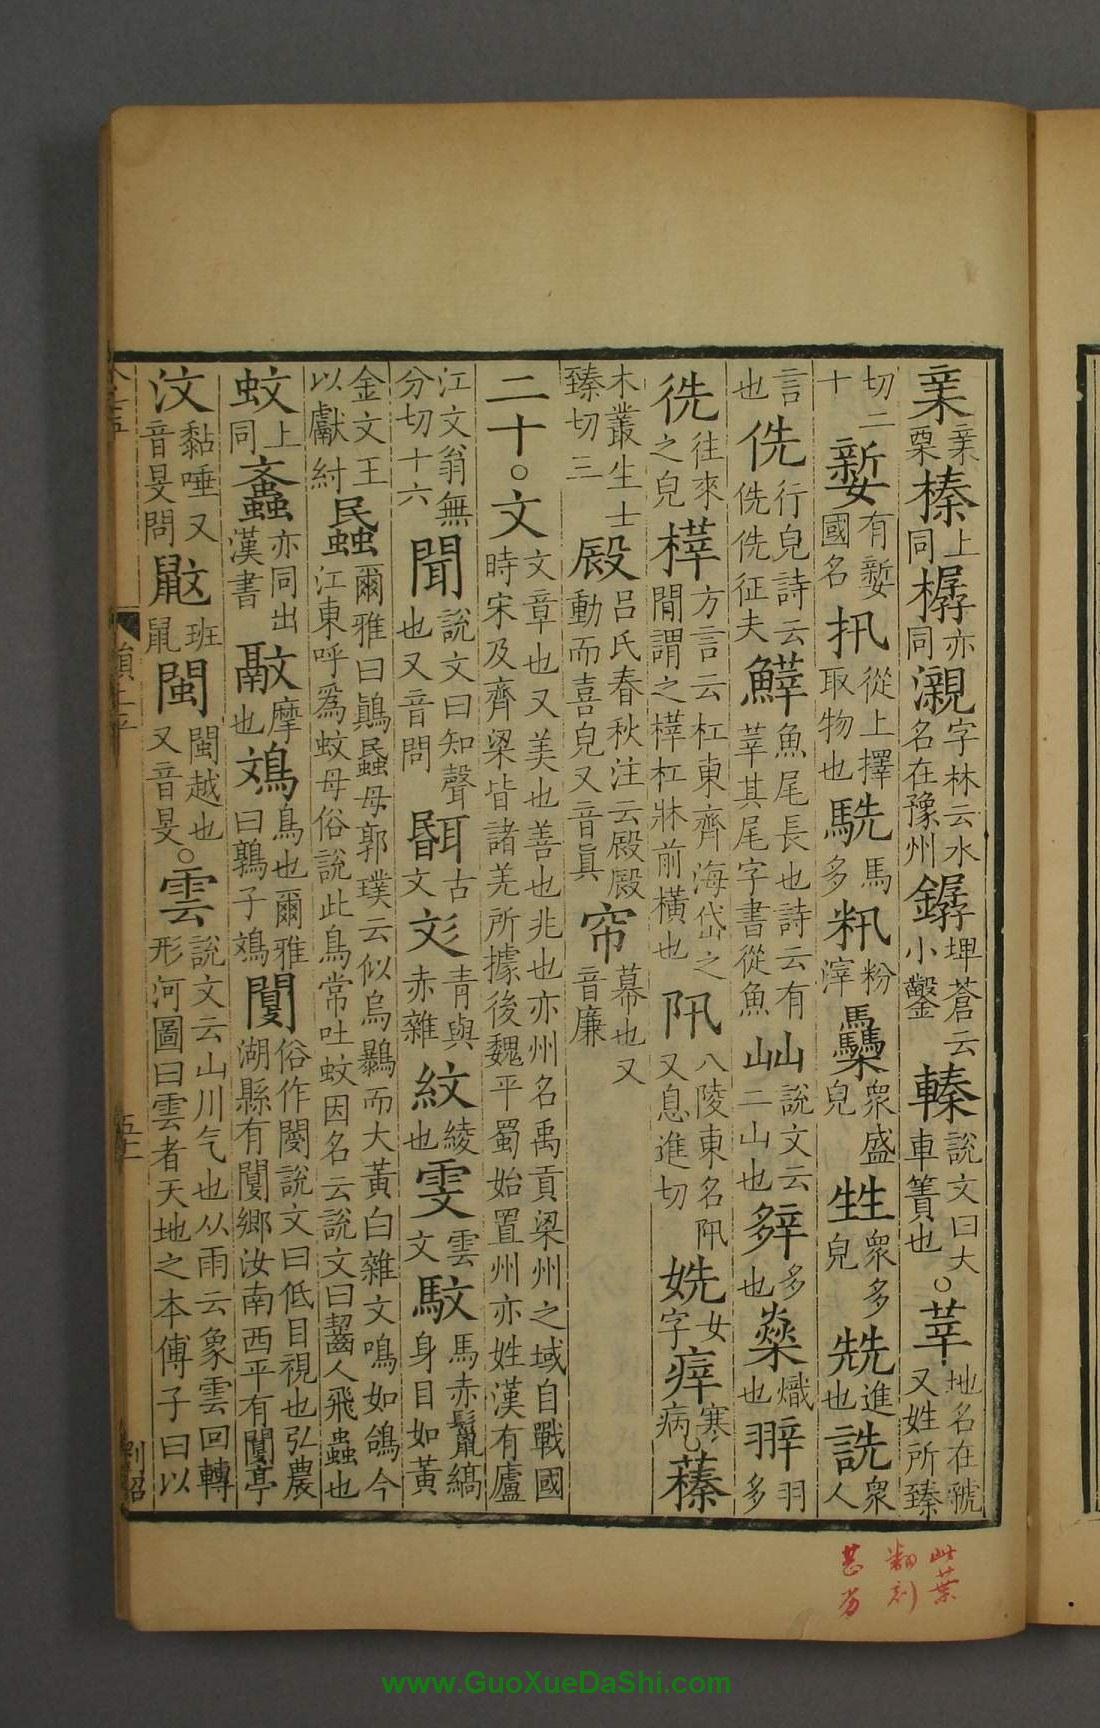 亲亲栗榛上同樼亦同瀙字林云水名在豫州鏲埤蒼云小鑿轃說文曰大車簀也○莘地名在虢又姓所臻
切二十㜪有㜪國名扟從上擇取物也駪馬多籸粉滓𩦲眾盛皃甡眾多皃兟進也詵眾人
言也侁行皃詩云侁侁征夫鮮魚尾長也詩云有莘其尾字書從魚屾說文云二山也㚞多也燊熾也羽多
往來之皃㭮方言云杠東齊海岱之間謂之㭮杠牀前橫也阠八陵東名阠又息進切姺女字瘁寒病蓁
木叢生士臻切三㕋呂氏春秋注云㕋㕋動而喜皃又音眞帘幕也又音廉
二十○文文章也又美也善也兆也亦州名禹貢梁州之域自戰國時宋及齊梁皆諸羌所據後魏平蜀始置州亦姓漢有廬
江文翁無分切十六聞說文曰知聲也又音問䎽古文彣青與赤雜紋綾也雯雲文馼馬赤鬣縞身目如黃
金文王以獻紂䘇爾雅曰鷏蟁母郭璞云似烏鷃而大黃白雜文鳴如鴿今江東呼爲蚊母俗說此鳥常吐蚊因名云說文曰齧人飛蟲也
蚊上同䘇亦同出漢書摩也鳼鳥也爾雅曰鶉子鳼闅俗作閺說文曰低目視也弘農湖縣有闅鄉汝南西平有闅亭
汶黏唾又音旻問鼤班鼠閩閩越也又音旻○雲說文云山川气也从雨云象雲回轉形河圖曰雲者天地之本傅子曰以
劉昭
此葉
翻刻
甚劣
www.GuoXueDaShi.com